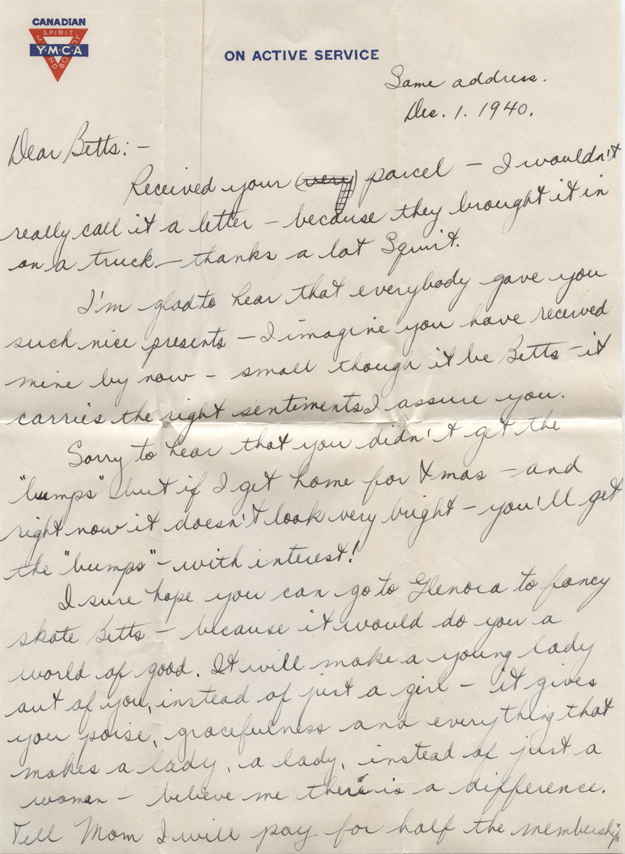 CANADIAN
SPIRIT
Y·M·C·A
MIND BODY
ON ACTIVE SERVICE
Same address.
Dec. 1. 1940.
Dear Betts:-
Received your (very) parcel – I wouldn't
really call it a letter – because they brought it in
on a truck – thanks a lot Squirt.
I'm glad to hear that everybody gave you
such nice presents – I imagine you have received
mine by now – small though it be Betts – it
carries the right sentiments I assure you.
Sorry to hear that you didn't get the
"bumps" but if I get home for Xmas – and
right now it doesn't look very bright – you'll get
the "bumps" – with interest!
I sure hope you can go to Glenora to fancy
skate Betts – because it would do you a
world of good. It will make a young lady
out of you, instead of just a girl – it gives
you poise, gracefulness and everything that
makes a lady, a lady, instead of just a
woman – believe me there is a difference.
Tell Mom I will pay for half the membership